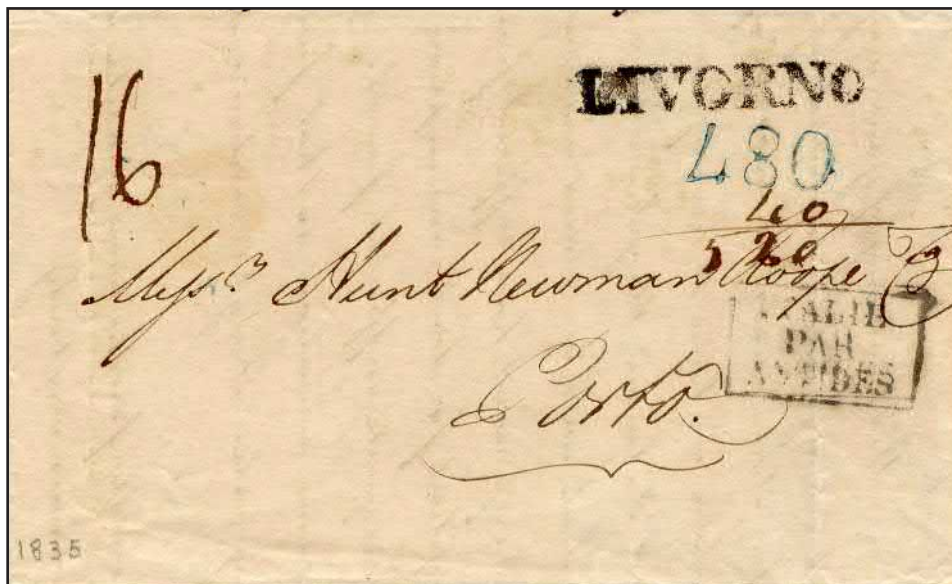 LIVORNO
16
480
40
520
Messrs Hunt Newman Roope & Co
Porto.
ITALIE
PAR
ANTIBES
1835